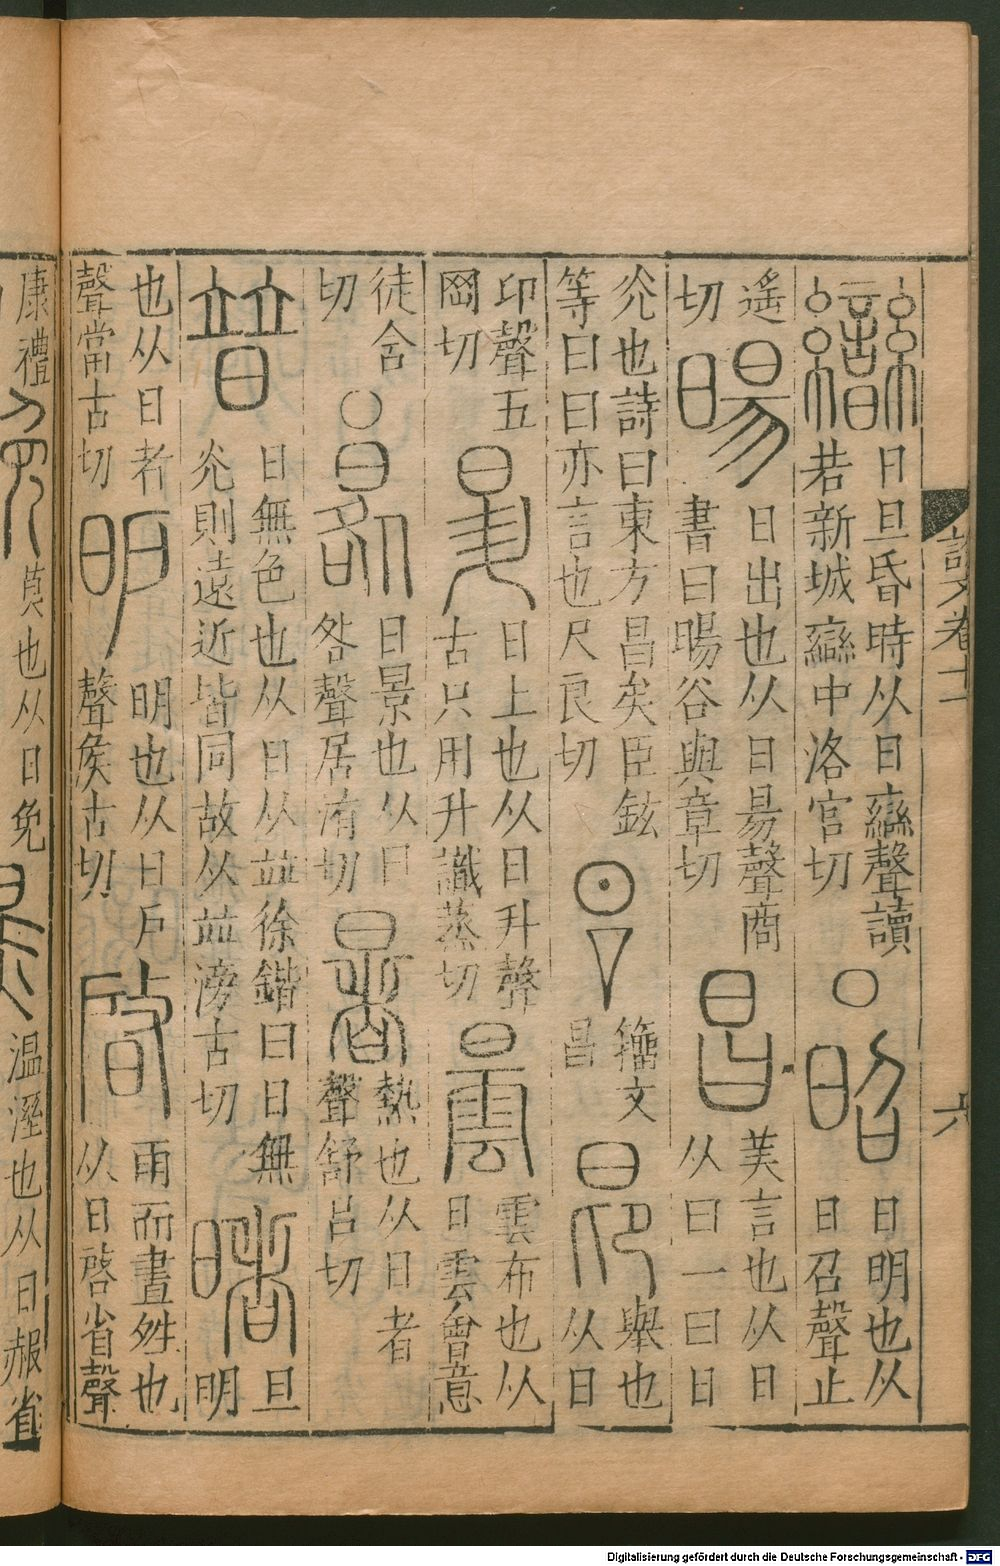 曫 日旦昏時从日䜌聲讀
若新城䜌中洛官切
○
昭 日明也从
日召聲止
遙
切
暘 日出也从日昜聲商
書曰暘谷與章切
昌 美言也从日
从曰一曰日
光也詩曰東方昌矣臣鉉
等曰曰亦言也尺良切
籀文
昌
昂 舉也
从日
卬聲五
岡切
昇 日上也从日升聲
古只用升識蒸切
曇 雲布也从
日雲會意
徒含
切
○
晷 日景也从日
咎聲居洧切
暑 熱也从日者
聲舒呂切
普 日無色也从日从並徐鍇曰日無
光則遠近皆同故从並滂古切
暏 旦
明
也从日者
聲當古切
昈 明也从日戶
聲矦古切
啓 雨而晝姓也
从日啓省聲
康禮
晚 莫也从日免
温溼也从日赧省
說文卷十一
六
Digitalisierung gefördert durch die Deutsche Forschungsgemeinschaft - DFG